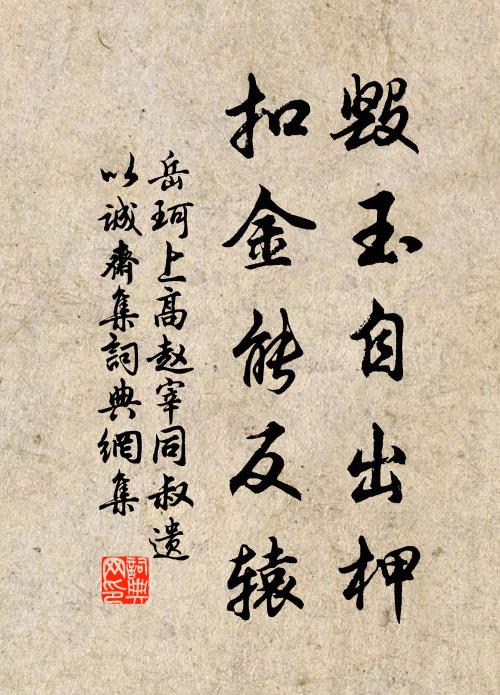 毁玉自出柙
扣金能反辕
岳珂上高赵宰同叔遗
以诚齋集詞典網集
詞典网印